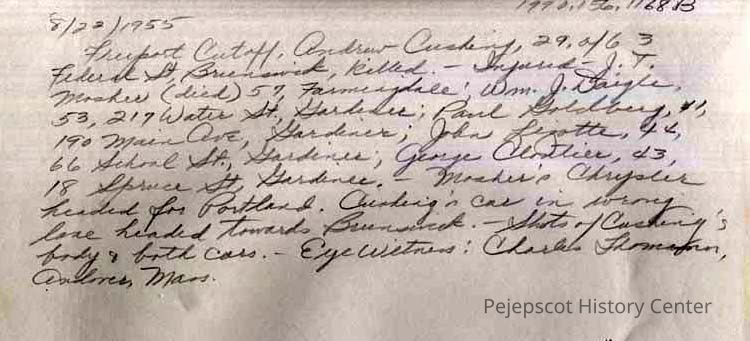 1990.156.1168B
8/22/1955
Freeport Cutoff, Andrew Cushing, 29, of 63
Federal St, Brunswick, killed. – Injured – J. T.
Mosher (died) 57, Farmingdale; Wm. J. Daigle,
53, 217 Water St., Gardiner; Paul Goldberg, 41,
190 Main Ave, Gardiner; John Lizotte, 44,
66 School St., Gardiner; George Cloutier, 43,
18 Spruce St, Gardiner. – Mosher's Chrysler
headed for Portland. Cushing's car in wrong
lane headed towards Brunswick. – Shots of Cushing's
body & both cars. – Eye Witness: Charles Thomson,
Andover, Mass.
Pejepscot History Center